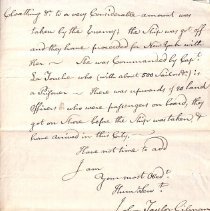 Cloathing &c to a very Considerable amount was
taken by the Enemy; the Ship was got off
and they have proceeded for New York with
Her — She was Commanded by Capt
La Touche who (with about 500 Sailors &c) is
a Prisoner — There was upwards of 50 Land
Officers who were passengers on board, they
got on Shore before the Ship was taken, &
have arrived in this City.
Have not time to add
I am
Your most Obedt
Humb Servt
John Taylor Gilman